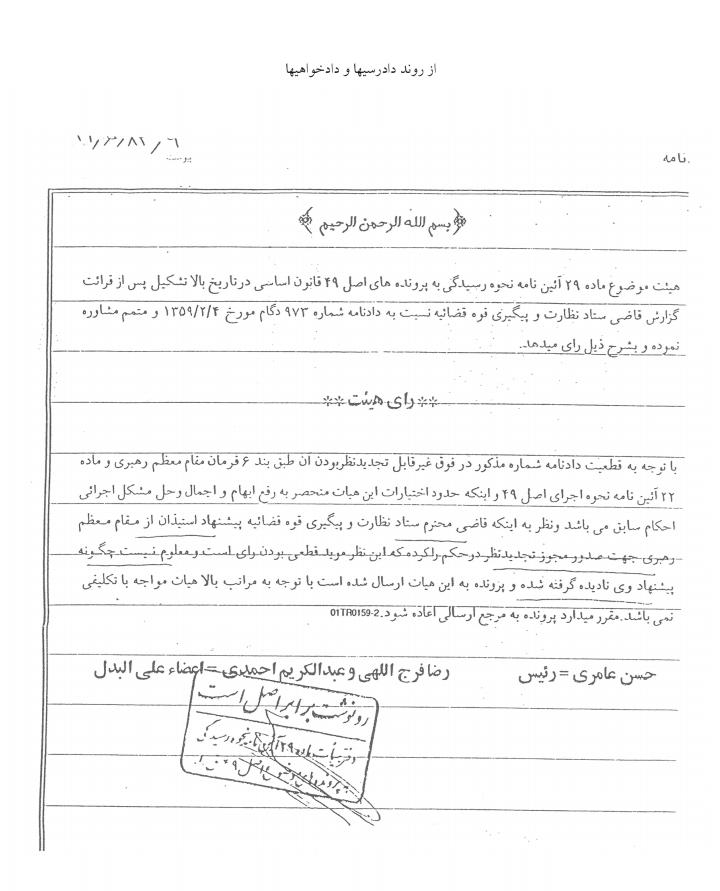 از روند دادرسیها و دادخواهیها
نامه
پیوست
بسم الله الرحمن الرحیم
هیئت موضوع ماده ۲۹ آئین نامه نحوه رسیدگی به پرونده های اصل ۴۹ قانون اساسی در تاریخ بالا تشکیل پس از قرائت
گزارش قاضی ستاد نظارت و پیگیری قوه قضائیه نسبت به دادنامه شماره ۹۷۳ دگام مورخ ۱۳۵۹/۲/۴ و متمم مشاوره
نموده و بشرح ذیل رای میدهد.
** رای هیئت **
با توجه به قطعیت دادنامه شماره مذکور در فوق غیرقابل تجدیدنظربودن ان طبق بند ۶ فرمان مقام معظم رهبری و ماده
۲۲ آئین نامه نحوه اجرای اصل ۴۹ و اینکه حدود اختیارات این هیات منحصر به رفع ابهام و اجمال وحل مشکل اجرائی
احکام سابق می باشد ونظر به اینکه قاضی محترم ستاد نظارت و پیگیری قوه قضائیه پیشنهاد استیذان از مقام معظم
رهبری جهت صدور مجوز تجدیدنظر درحکم راکرده که این نظر موید قطعی بودن رای است و معلوم نیست چگونه
پیشنهاد وی نادیده گرفته شده و پرونده به این هیات ارسال شده است با توجه به مراتب بالا هیات مواجه با تکلیفی
نمی باشد.مقرر میدارد پرونده به مرجع ارسالی اعاده شود.01TR0159-2
حسن عامری = رئیس رضا فرج اللهی و عبدالکریم احمدی = اعضاء علی البدل
رونوشت برابر اصل است